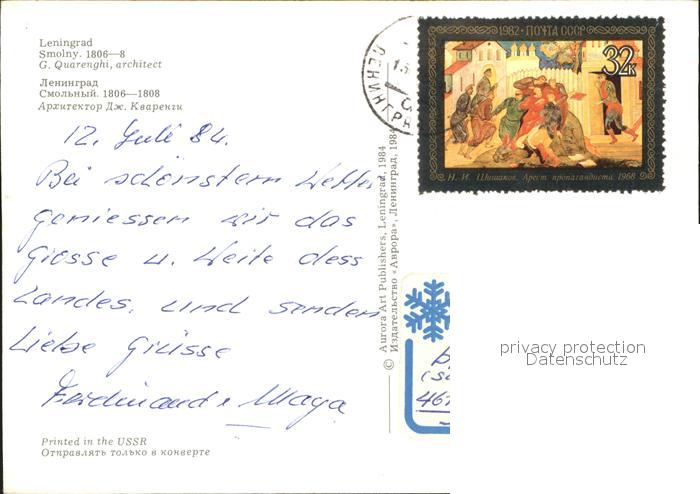 Leningrad
Smolny. 1806—8
G. Quarenghi, architect
Ленинград
Смольный. 1806—1808
Архитектор Дж. Кваренги
12. Juli 84.
Bei schönstem Wetter
geniessen wir das
Grosse u. Weite dess
Landes, und senden
Liebe Grüsse
Ferdinand + Maya
Printed in the USSR
Отправлять только в конверте
© Aurora Art Publishers, Leningrad, 1984
Издательство «Аврора», Ленинград, 1984
ЛЕНИНГРА
1982 · ПОЧТА СССР
32к
Н. И. Шишаков. Арест пропагандиста 1968
461
privacy protection
Datenschutz